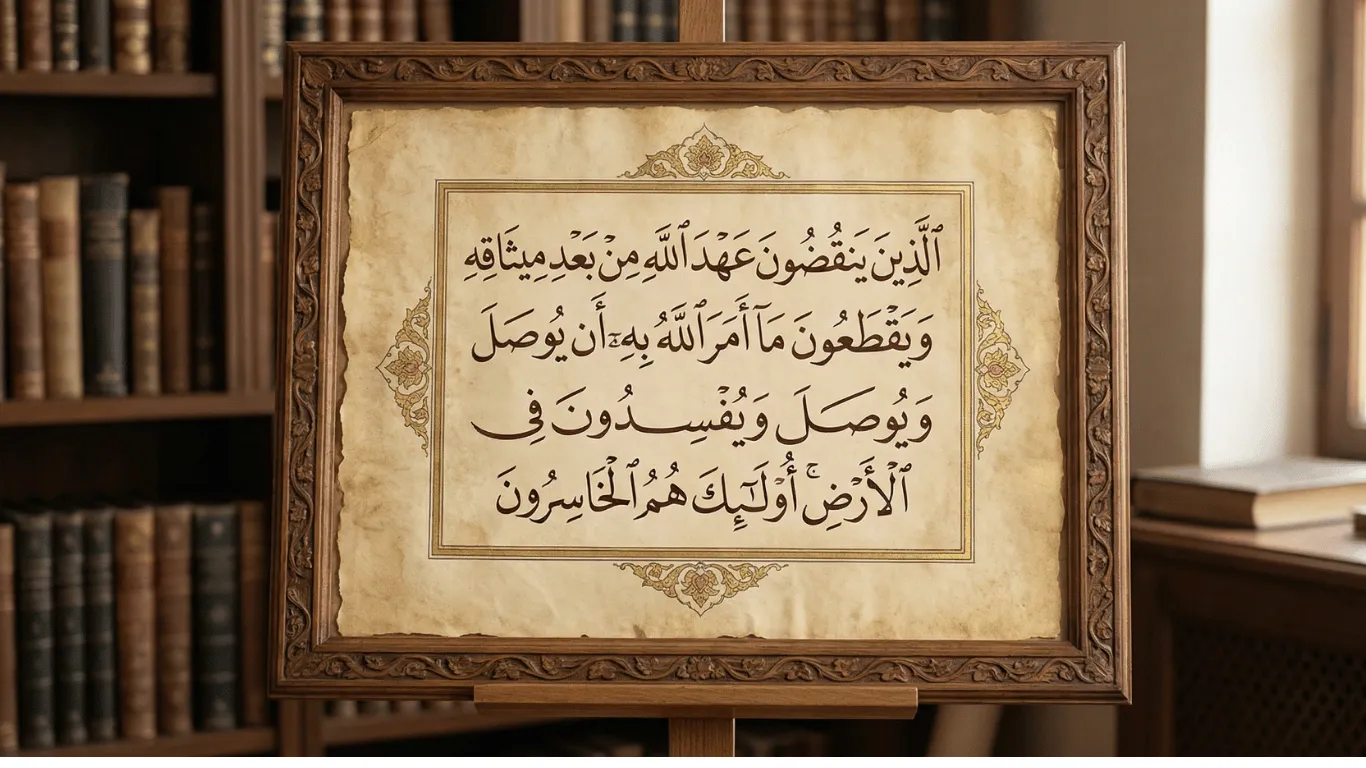 ٱلَّذِينَ يَنقُضُونَ عَهْدَ ٱللَّهِ مِنْ بَعْدِ مِيثَاقِهِ
وَيَقْطَعُونَ مَآ أَمَرَ ٱللَّهُ بِهِۦٓ أَن يُوصَلَ
وَيُوصَلَ وَيُفْسِدُونَ فِي
ٱلْأَرْضِ ۚ أُوْلَـٰٓئِكَ هُمُ ٱلْخَاسِرُونَ